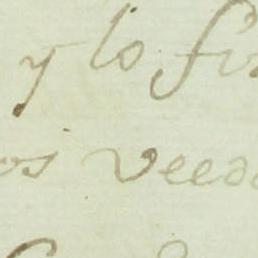 y lo fir
os veedo